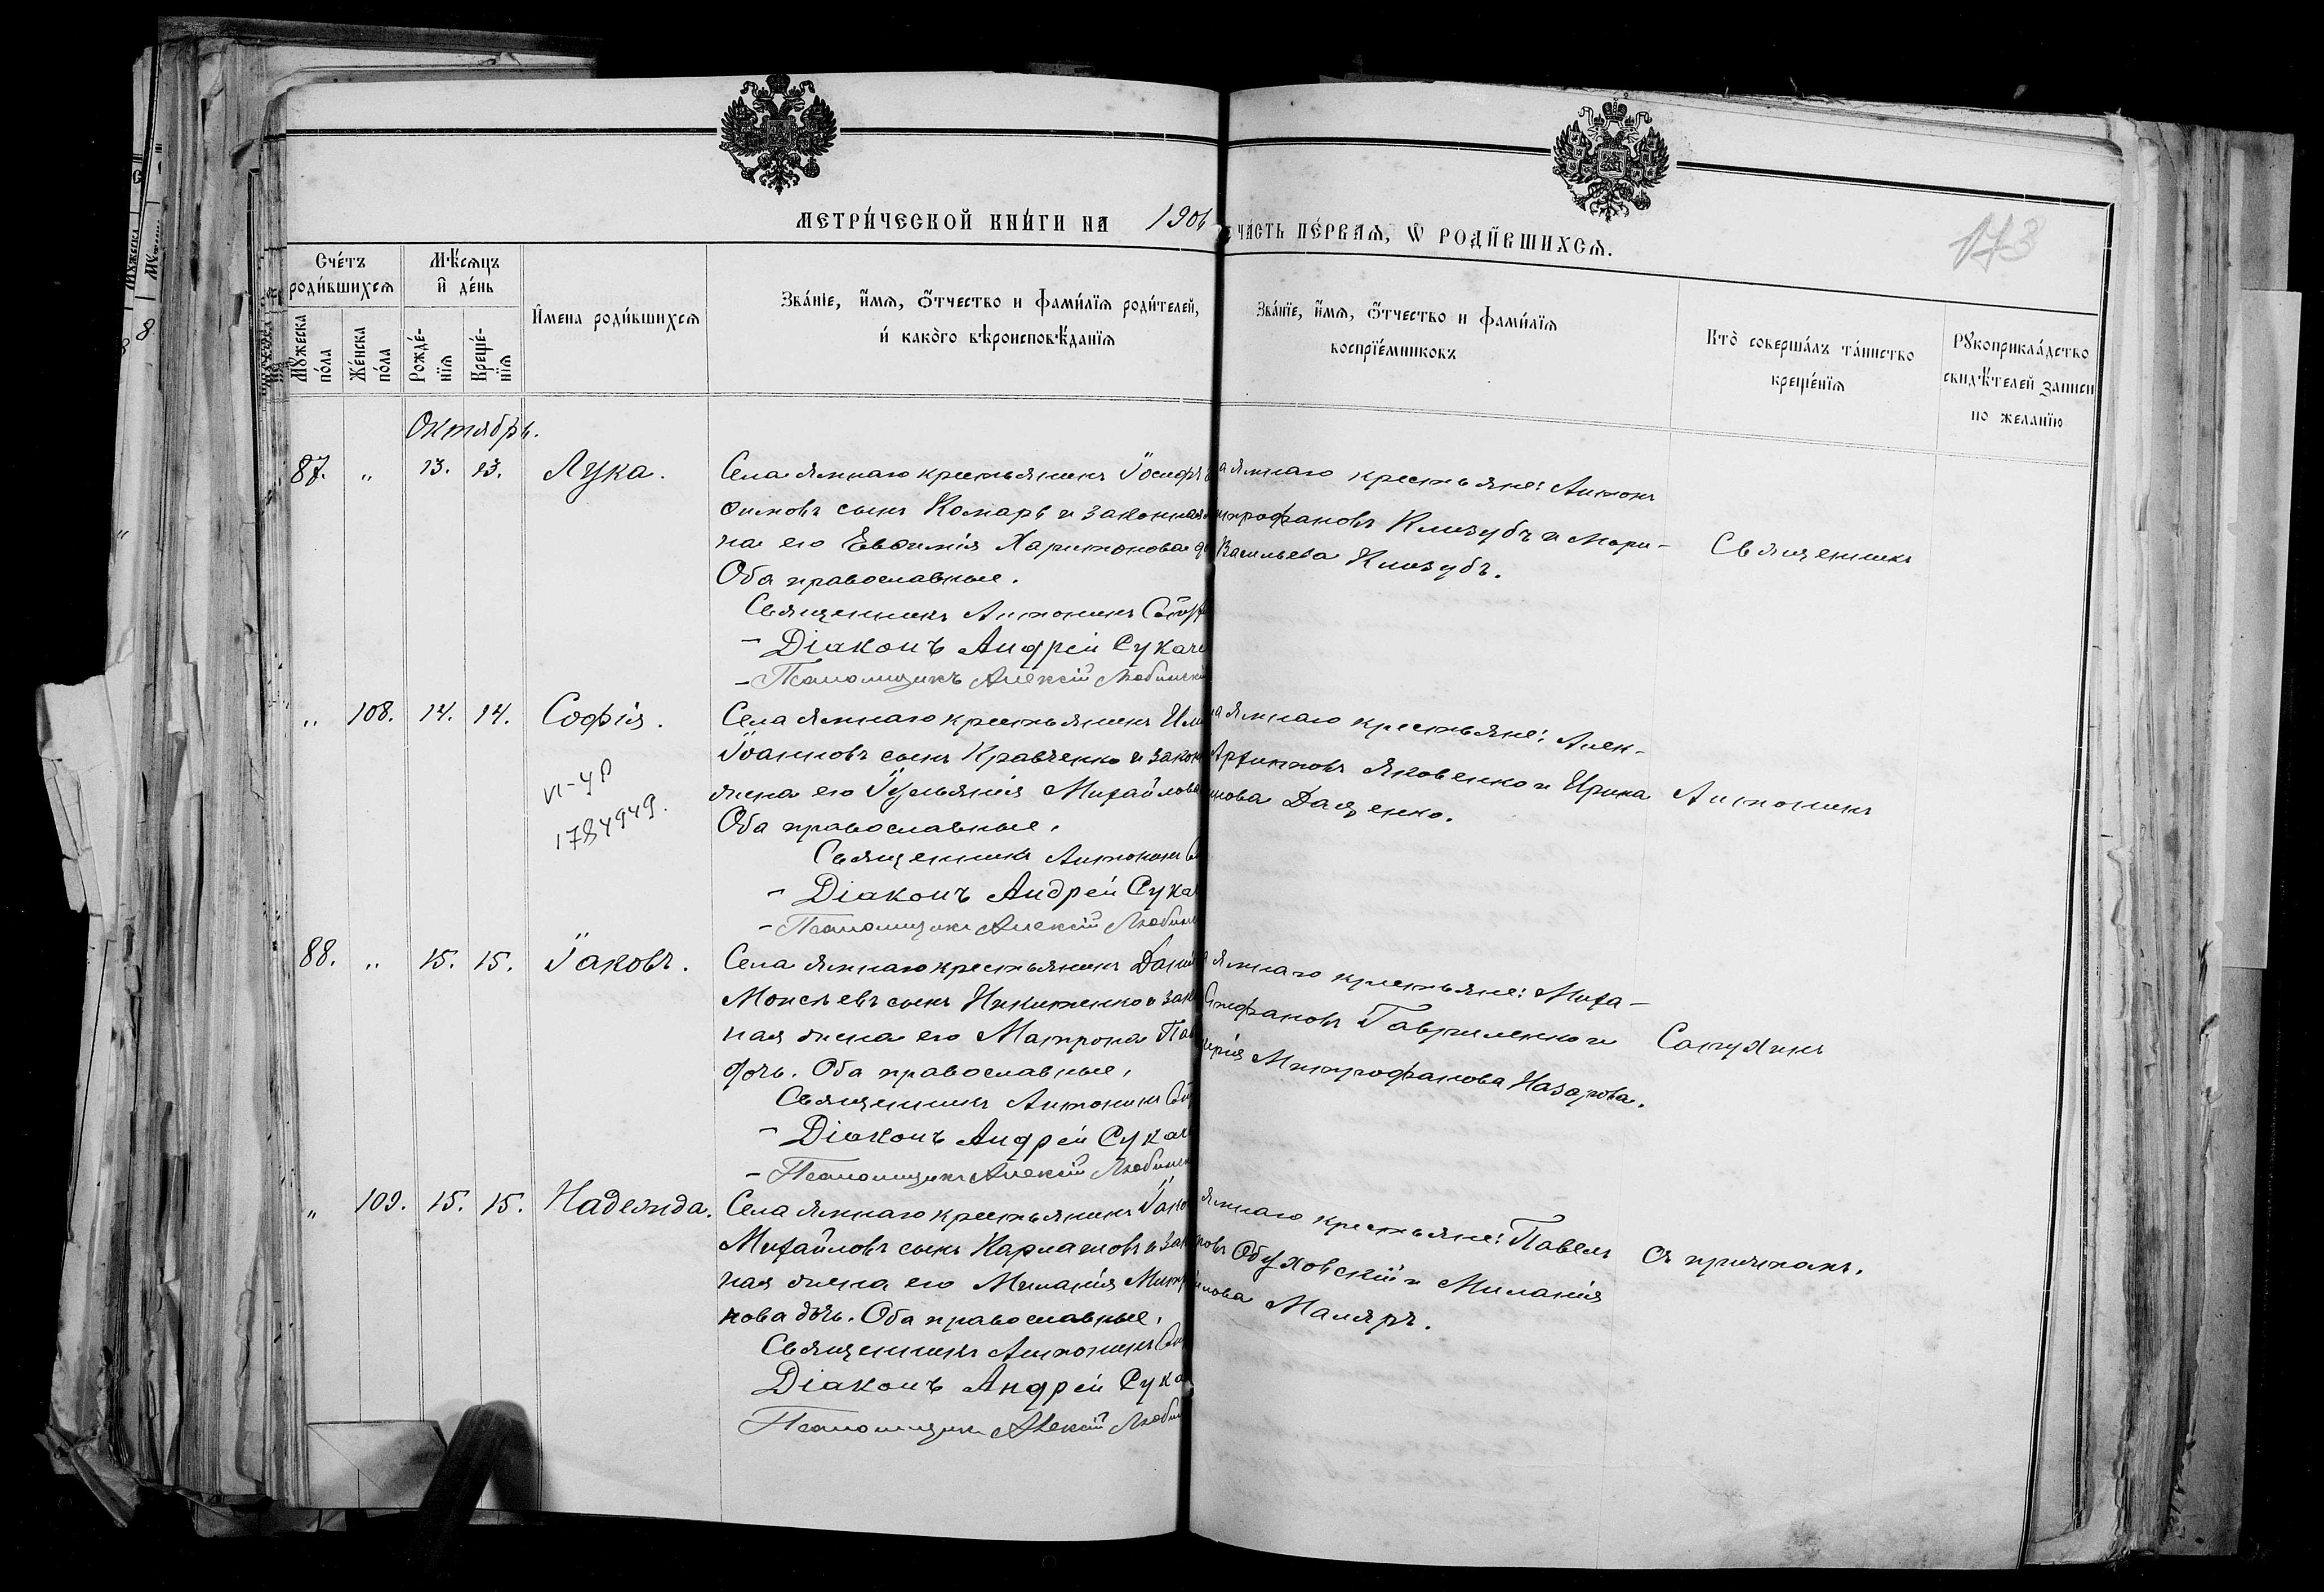 МЕТРИ́ЧЕСКОЙ КНИ́ГИ НА 1906
ЧА́СТЬ ПЕ́РВАѦ, Ѽ РОДИ́ВШИХСѦ.
173
Сче́тъ
роди́вшихсѧ
Мꙋ́жеска
по́ла
Же́нска
по́ла
Мѣ́сѧцъ
и҆ де́нь
Рожде́-
нїѧ
Креще́-
нїѧ
И҆́мена роди́вшихсѧ
Зва́нїе, и҆́мѧ, ѻ҆́тчество и фами́лїѧ роди́телей,
и҆ како́го вѣроисповѣ́данїѧ
Зва́нїе, и҆́мѧ, ѻ҆́тчество и фами́лїѧ
воспрїе́мниковъ
Кто̀ соверша́лъ та́инство
креще́нїѧ
Рꙋкоприкла́дство
свидѣ́телей записи
по жела́нїю
Октябрь.
87. " 13. 13. Лука.
Села Ямнаго крестьянинъ Іосифъ
симовъ сынъ Комаръ и законная
на его Евѳимія Харитонова
Оба православные.
Священникъ Антонинъ
– Діаконъ Андрей Сукаче
– Псаломщикъ Алексій Любинскій
Ямнаго крестьяне: Антонъ
трофановъ Клизубъ и Мари-
Васильева Клизубъ.
Священникъ
" 108. 14. 14. Софія.
VI-УР
1784949.
Села Ямнаго крестьянинъ
Іоанновъ сынъ Кравченко и закон
жена его Іульянія Михайлова
Оба православные.
Священникъ Антонинъ
– Діаконъ Андрей Сука
– Псаломщикъ Алексій Любинс
Ямнаго крестьяне: Алек-
Архиповъ Яковенко и Ирина
нова Даценко.
Антонинъ
88. " 15. 15. Іаковъ.
Села Ямнаго крестьянинъ Даніи
Моисеевъ сынъ Никитенко и зак
ная жена его Матрона Пав
дочь. Оба православные.
Священникъ Антонинъ
– Діаконъ Андрей Сукаче
– Псаломщикъ Алексій Любинск
Ямнаго крестьяне: Миха-
Стефановъ Гавриленко и
Митрофанова Назарова.
" 109. 15. 15. Надежда.
Села Ямнаго крестьянинъ Іако
Михайловъ сынъ и зак
ная жена его Меланія Митр
нова дочь. Оба православные.
Священникъ Антонинъ
Діаконъ Андрей Сука
Псаломщикъ Алексій Люби
Ямнаго крестьяне: Павелъ
Обуховскій и Меланія
Маляръ.
Съ причтомъ.